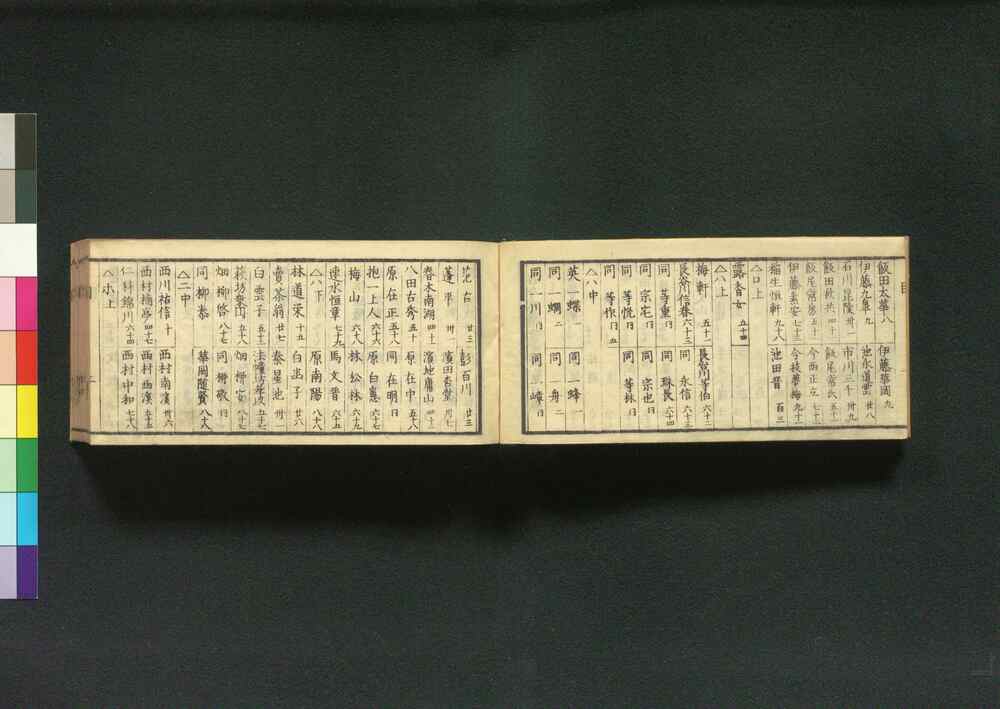 目
飯田太華 八 伊藤華岡 九
伊藤九皐 九 池永道雲 廿八
石川昆陵 卅一 市川三千 卅九
飯田
飯尾常房 五十一 今西正立 七十三
伊藤素安 七十三 今枝夢梅 九十一
稲生恒軒 九十八 池田晋 百三
ヘロ上
露香女 五十四
ヘハ上
梅軒 五十二 長谷川等伯 六十二
長谷川信春 六十三 同 永信 六十三
同 等重 同 珠長 六十四
同 宗宅 同 同 宗也 同
同 等悦 同 同 等林 同
同 等作 同
ヘハ中
英一蝶 一 同 一蜂 一
同 一蜩 二 同 一舟 二
同 一川 同 同 一峰 同
彭百川 廿三
蓬平 卅一
春木南湖 四十一 濱地庸山 四十三
八田古秀 五十 原在中 五十八
原在正 五十八 同在明 同
抱一上人 六十六 原白隠 六十七
梅山 六十八 林松林 六十八
速水恒章 七十九 馬文晋 六十五
ヘハ下 原南陽 八十六
林道栄 十五 白幽子 廿六
賣茶翁 廿七 秦星池 卅一
白雲子 五十三
畑柳啓 八十七 同柳敬 同
同柳泰 華岡随賢 八十八
ヘニ中
西川祐信 十 西村南濱 卅六
西村楠亭 四十七 西村
仁科錦川 六十四 西村中和 七十九
ヘホ上